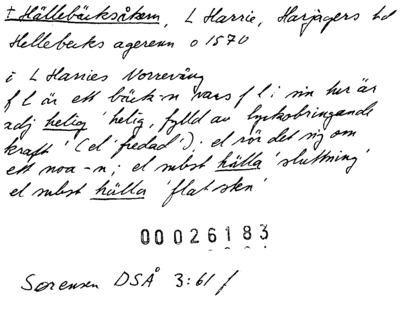 † Hällebäcksåkern, L Harrie, Harjagers hd
Hellebecks ageren o 1570
i L Harries Norrevång
f l är ett bäck-n vars f l i sin tur är
adj helig 'helig, fylld av lyckobringande
kraft' (el 'fredad'); el rör det sig om
ett noa-n; el subst hälla 'sluttning'
el subst hälla 'flat sten'
00026183
Sørensen DSÅ 3:61 f